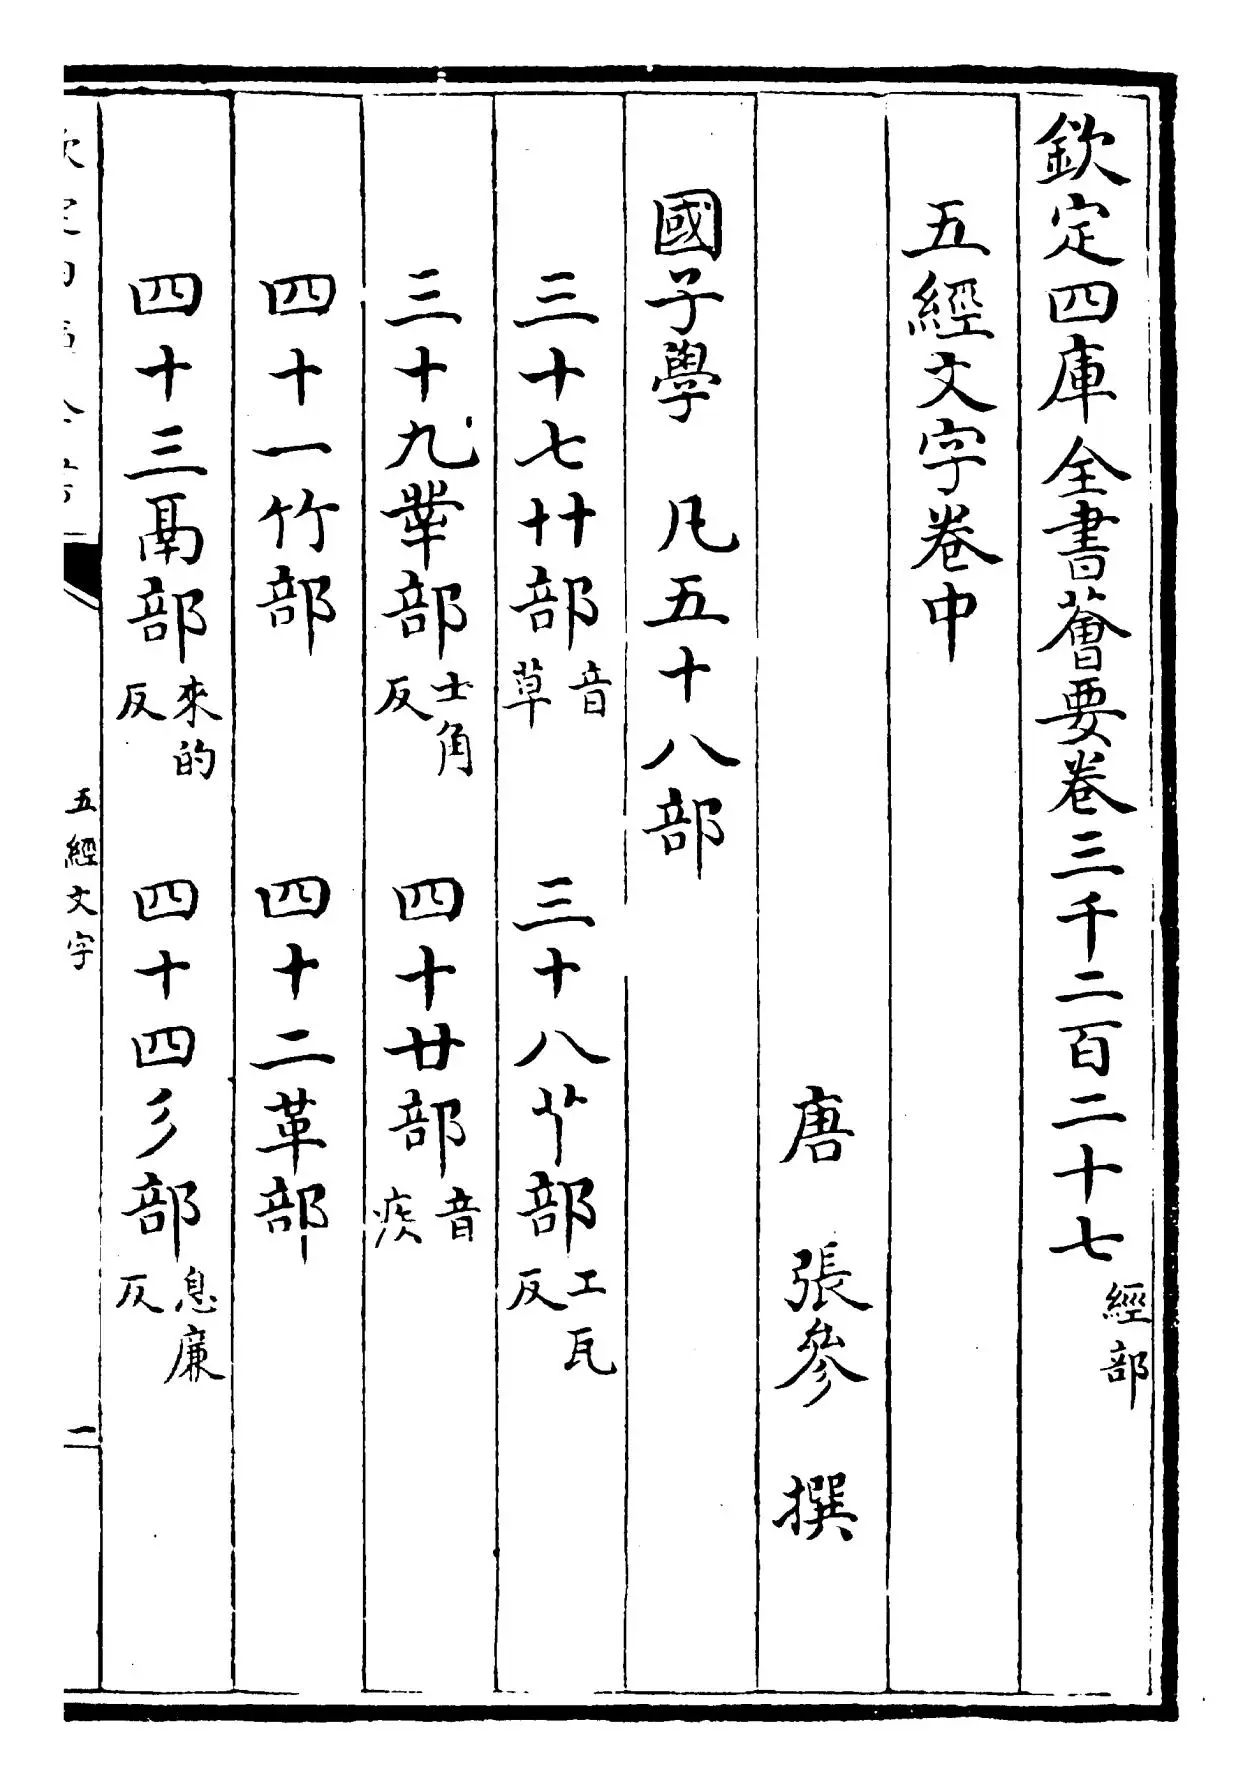 欽定四庫全書薈要卷三千二百二十七 經部
五經文字卷中
唐 張參 撰
國子學 凡五十八部
三十七艸部 音草 三十八𠁥部 工瓦反
三十九丵部 士角反 四十廿部 音疾
四十一竹部 四十二革部
四十三鬲部 來的反 四十四彡部 息廉反
五經文字
一